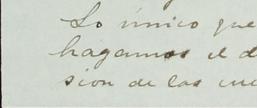 Lo único que
hagamos el d
sion de las cue